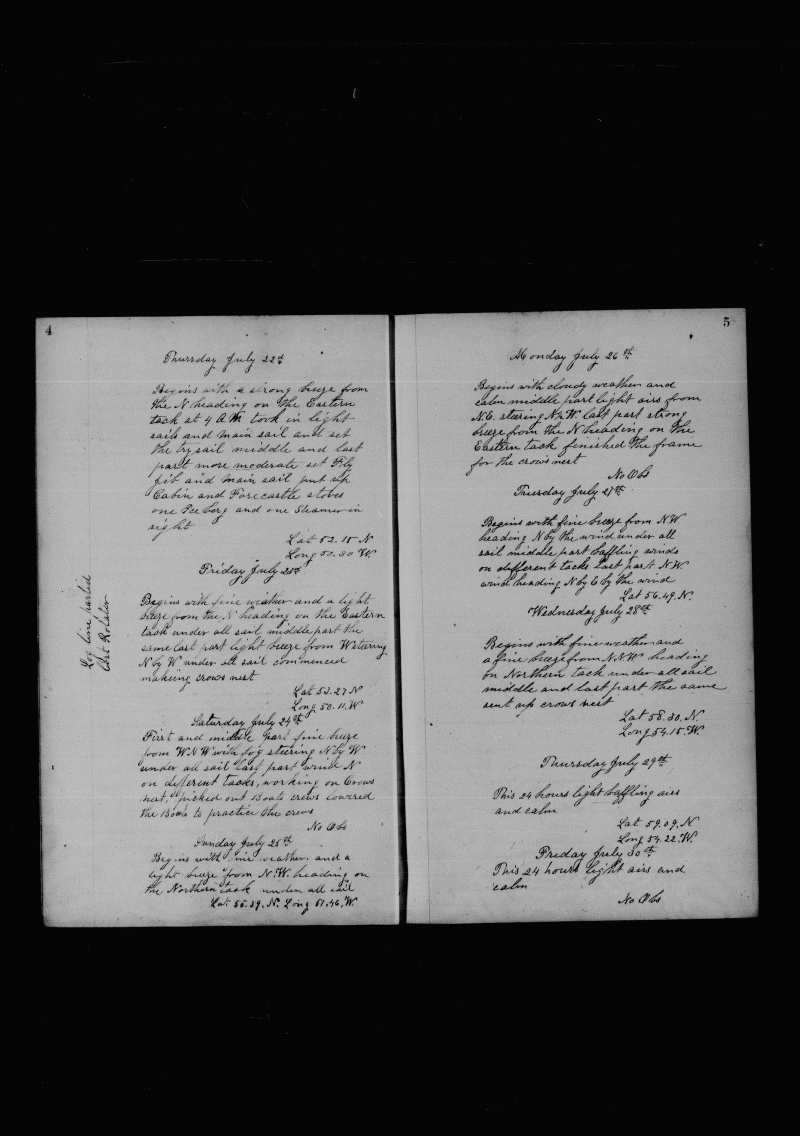 4
Thursday July 22d
Begins with a strong breeze from
the N heading on the Eastern
tack at 4 AM took in light
sails and main sail and set
the try sail middle and last
part more moderate set Fly
jib and main sail put up
Cabin and Forecastle stoves
one Ice berg and one Steamer in
sight
Lat 52.15 N
Long 50.30 W
Friday July 23d
Log line parted
lost Rotator
Begins with fine weather and a light
breeze from the N heading on the Eastern
tack under all sail middle part the
same last part light breeze from W steering
N by W under all sail commenced
makeing crows nest
Lat 53.27 N
Long 50.11. W
Saturday July 24th
First and middle part fine breeze
from W.N.W with fog steering N by W
under all sail last part wind N
on different tacks, working on Crows
nest, picked out Boats crews lowered
the Boats to practice the crews
No Obs
Sunday July 25th
Begins with fine weather and a
light breeze from N.W. heading on
the Northern tack under all sail
Lat. 55.39. N. Long 51.46, W.
5
Monday July 26th
Begins with cloudy weather and
calm middle part light airs from
N.E. stering N by W. last part strong
breeze from the N heading on the
Eastern tack finished the frame
for the crows nest
No Obs
Tuesday July 27th
Begins with fine breeze from N.W.
heading N by the wind under all
sail middle part baffling winds
on different tacks last part N.W.
wind heading N by E by the wind
Lat 56.49. N.
Wednesday July 28th
Begins with fine weather and
a fine breeze from N.N.W. heading
on Northern tack under all sail
middle and last part the same
sent up crows nest
Lat 58.30. N.
Long 54.15. W.
Thursday July 29th
This 24 hours light baffling airs
and calm
Lat 59.09. N.
Long 54.22. W.
Friday July 30th
This 24 hours light airs and
calm
No Obs